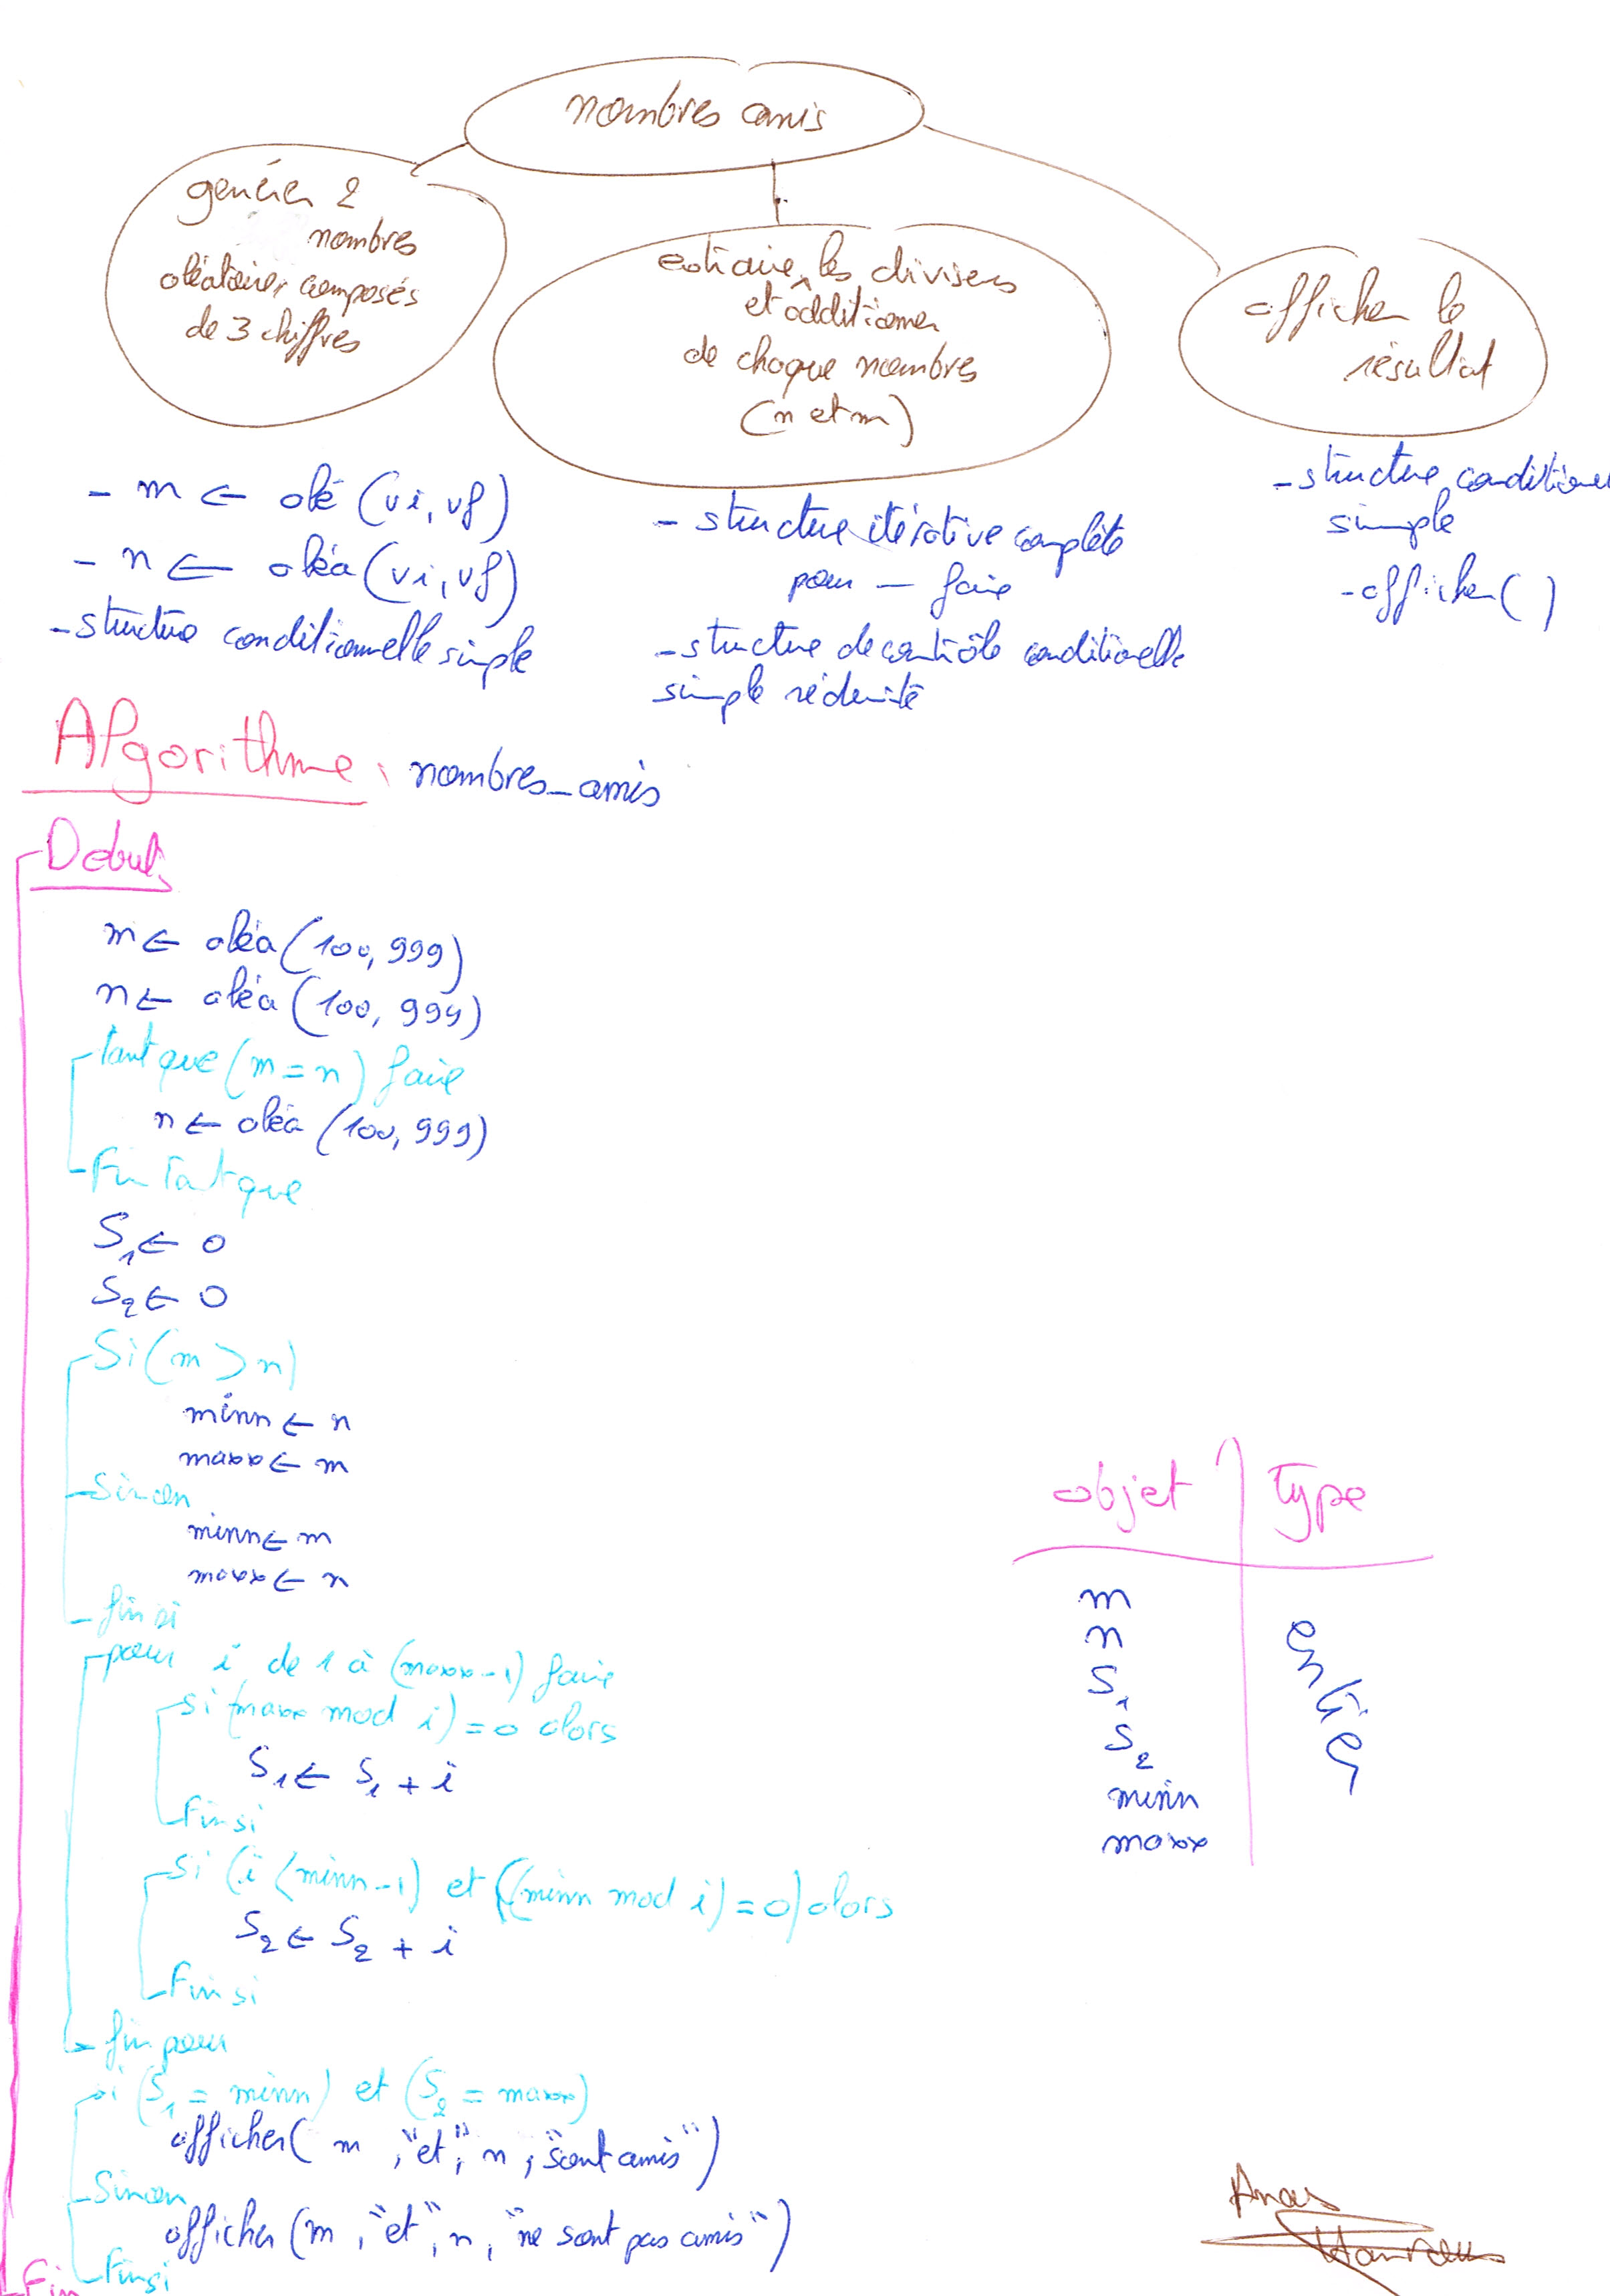 nombres amis
générer 2
nombres
aléatoires composés
de 3 chiffres
extraire les diviseurs
et additionner
de chaque nombres
(n et m)
afficher le
résultat
- m ← alé (vi, vf)
- n ← aléa (vi, vf)
- structure conditionnelle simple
- structure itérative complète
pour — faire
- structure de contrôle conditionelle
simple réduité
- structure conditionel
simple
- afficher( )
Algorithme : nombres_amis
Debut
m ← aléa (100, 999)
n ← aléa (100, 999)
tant que (m = n) faire
n ← aléa (100, 999)
Fin Tant que
S1 ← 0
S2 ← 0
Si (m > n)
minn ← n
maxx ← m
Sinon
minn ← m
maxx ← n
fin si
pour i de 1 à (maxx-1) faire
si (maxx mod i) = 0 alors
S1 ← S1 + i
Fin si
si (i < minn-1) et ((minn mod i) = 0) alors
S2 ← S2 + i
Fin si
fin pour
si (S1 = minn) et (S2 = maxx)
afficher( m , "et", n , "sont amis")
Sinon
afficher (m , "et", n, "ne sont pas amis")
Finsi
Fin
objet type
m
n
S1
S2
minn
maxx
entier
Anas